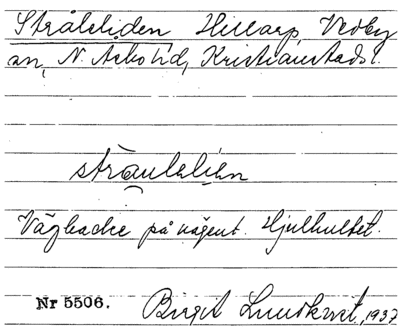 Stråleliden Hillarp, Vedby
an, N. Åsbo hd, Kristianstads l.
straulelien
Vägbacke på vägen t. Hjulhultet.
Nr 5506. Birgit Lundkvist, 1937